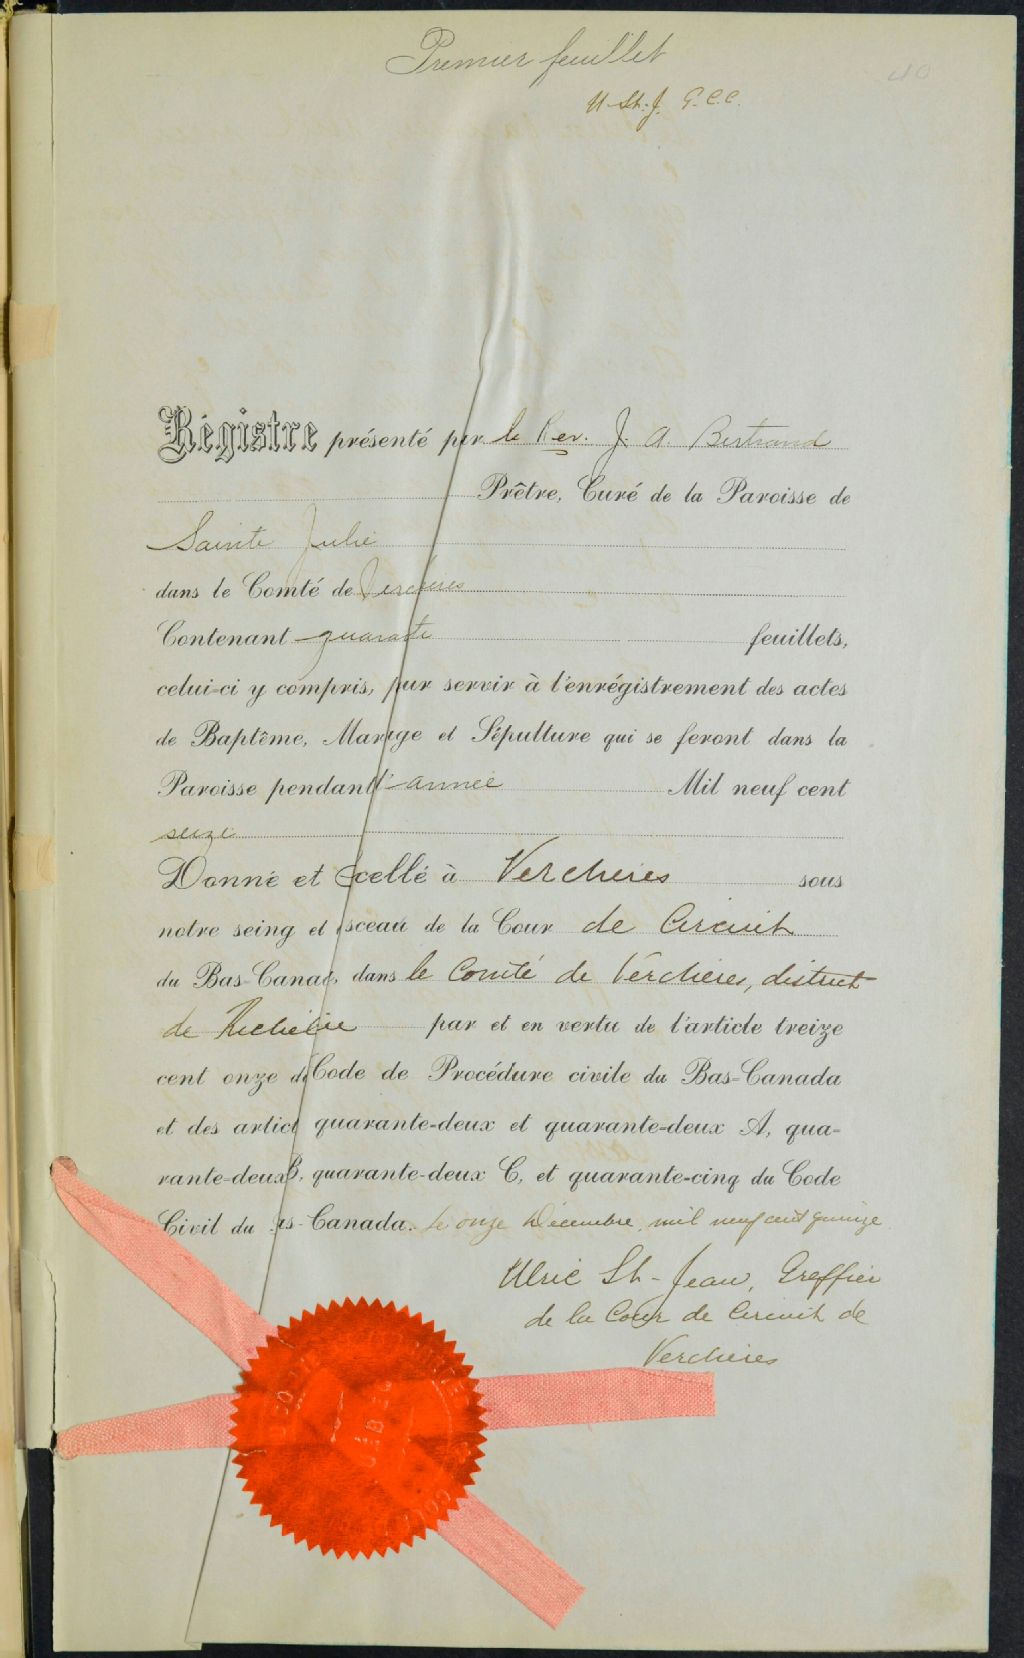 Premier feuillet
40
U. St. J. G.C.C.
Régistre présenté par le Rev. J. A. Bertrand
Prêtre, Curé de la Paroisse de
Sainte Julie
dans le Comté de Verchères
Contenant quarante feuillets,
celui-ci y compris, pur servir à l'enrégistrement des actes
de Baptême, Marige et Sépulture qui se feront dans la
Paroisse pendant l'année Mil neuf cent
seize
Donné et scellé à Verchères sous
notre seing et sceau de la Cour de Circuit
du Bas-Canad, dans le Comté de Verchères, district
de Richelieu par et en vertu de l'article treize
cent onze d Code de Procédure civile du Bas-Canada
et des articl quarante-deux et quarante-deux A, qua-
rante-deux B, quarante-deux C, et quarante-cinq du Code
Civil du as-Canada. Le onze Décembre, mil neuf cent quinze
Ulric St-Jean, Greffier
de la Cour de Circuit de
Verchères